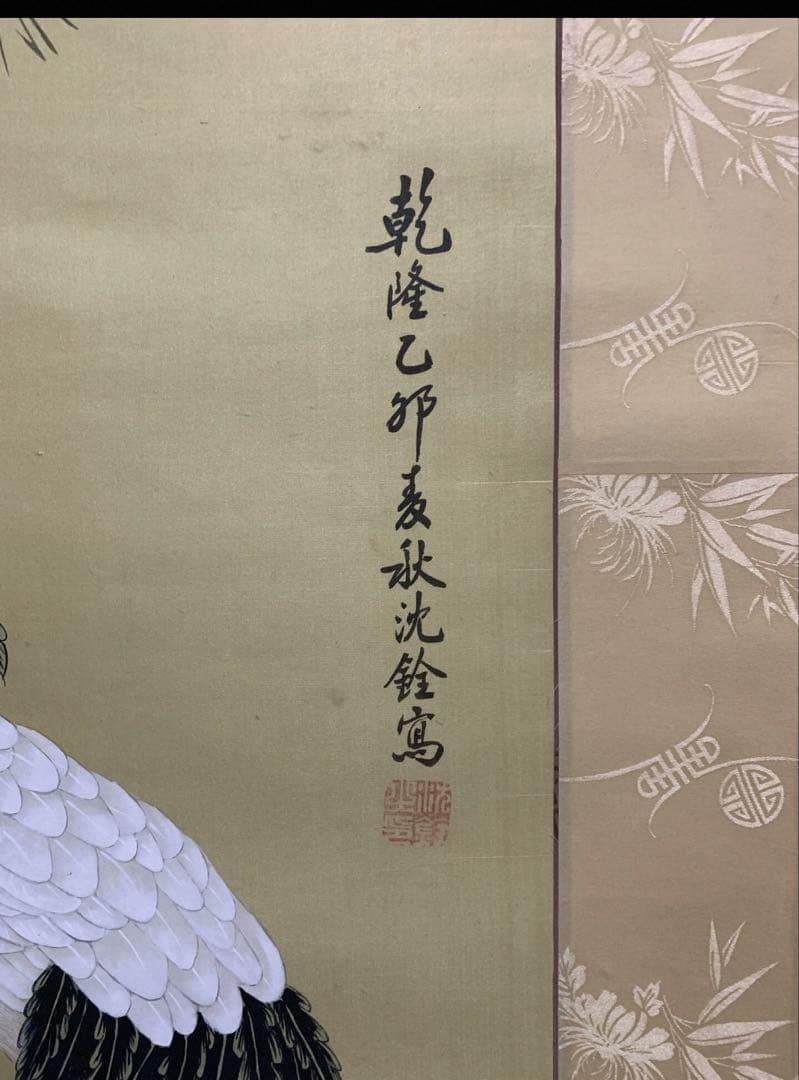 乾隆乙卯麦秋沈銓寫